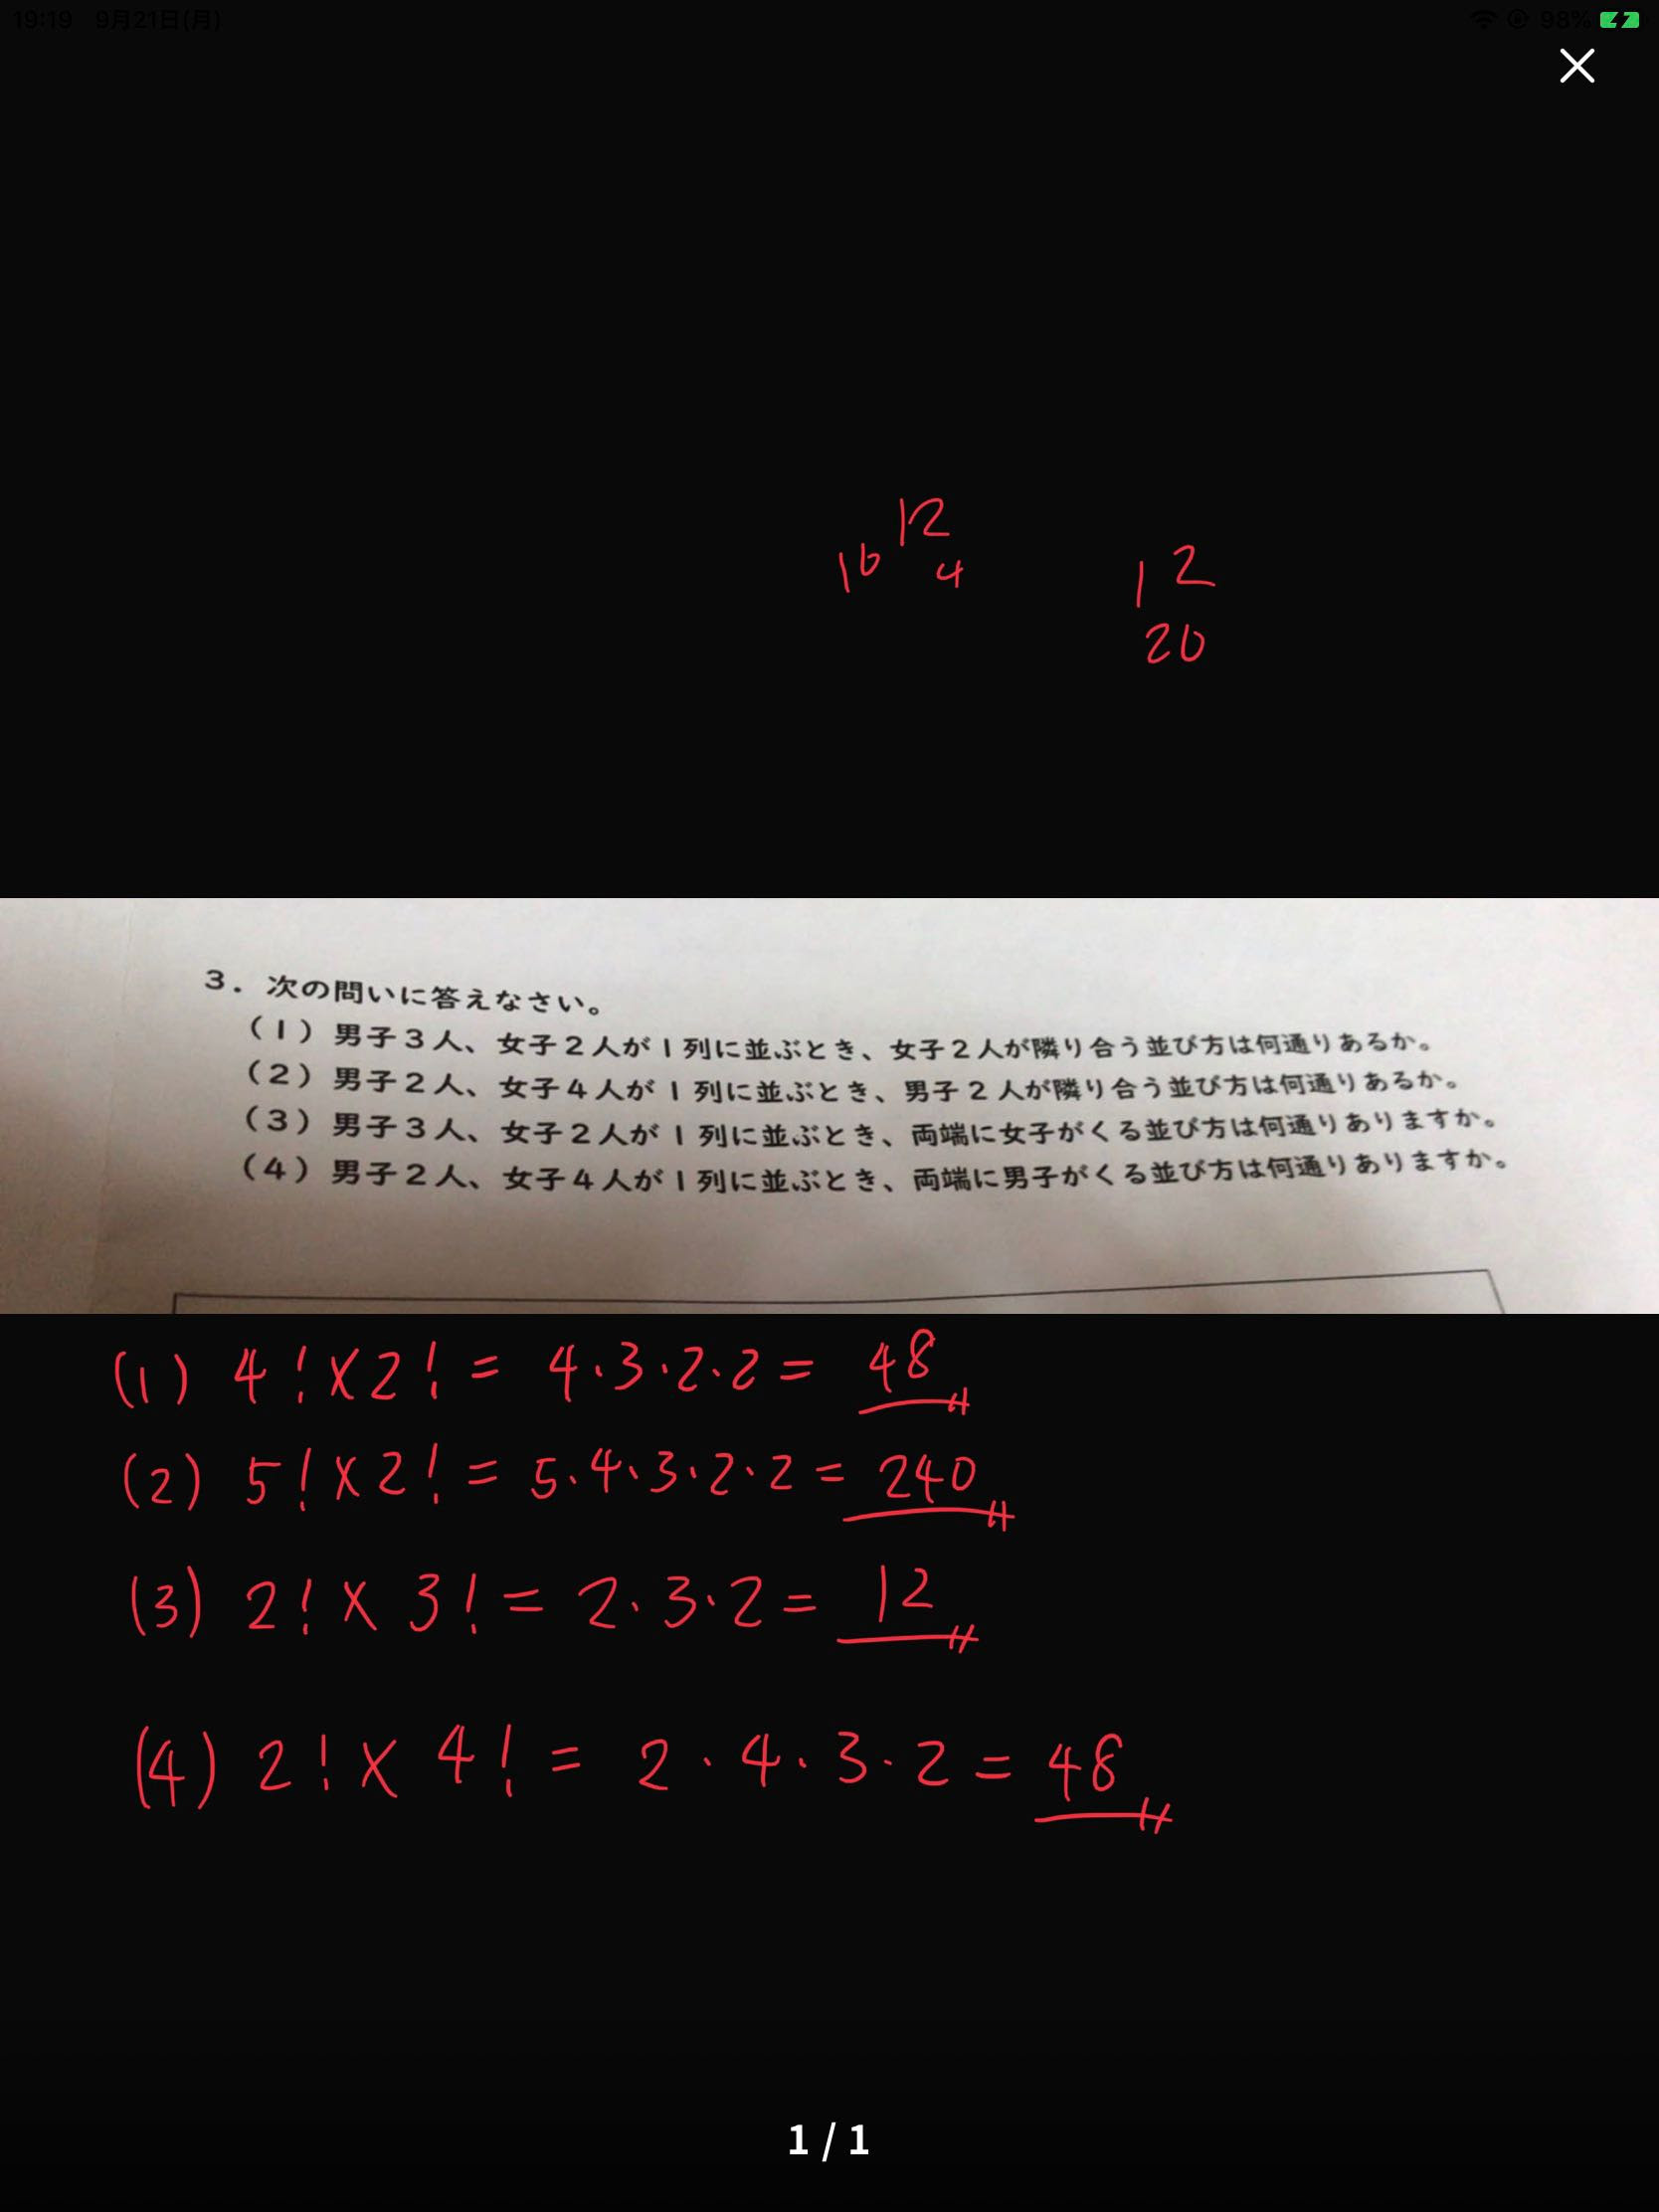 19:19 9月21日(月) 98%
12
10 4
1 2
20
3．次の問いに答えなさい。
（1）男子3人、女子2人が1列に並ぶとき、女子2人が隣り合う並び方は何通りあるか。
（2）男子2人、女子4人が1列に並ぶとき、男子2人が隣り合う並び方は何通りあるか。
（3）男子3人、女子2人が1列に並ぶとき、両端に女子がくる並び方は何通りありますか。
（4）男子2人、女子4人が1列に並ぶとき、両端に男子がくる並び方は何通りありますか。
(1) 4!×2! = 4·3·2·2 = 48
(2) 5!×2! = 5·4·3·2·2 = 240
(3) 2!×3! = 2·3·2 = 12
(4) 2!×4! = 2·4·3·2 = 48
1/1